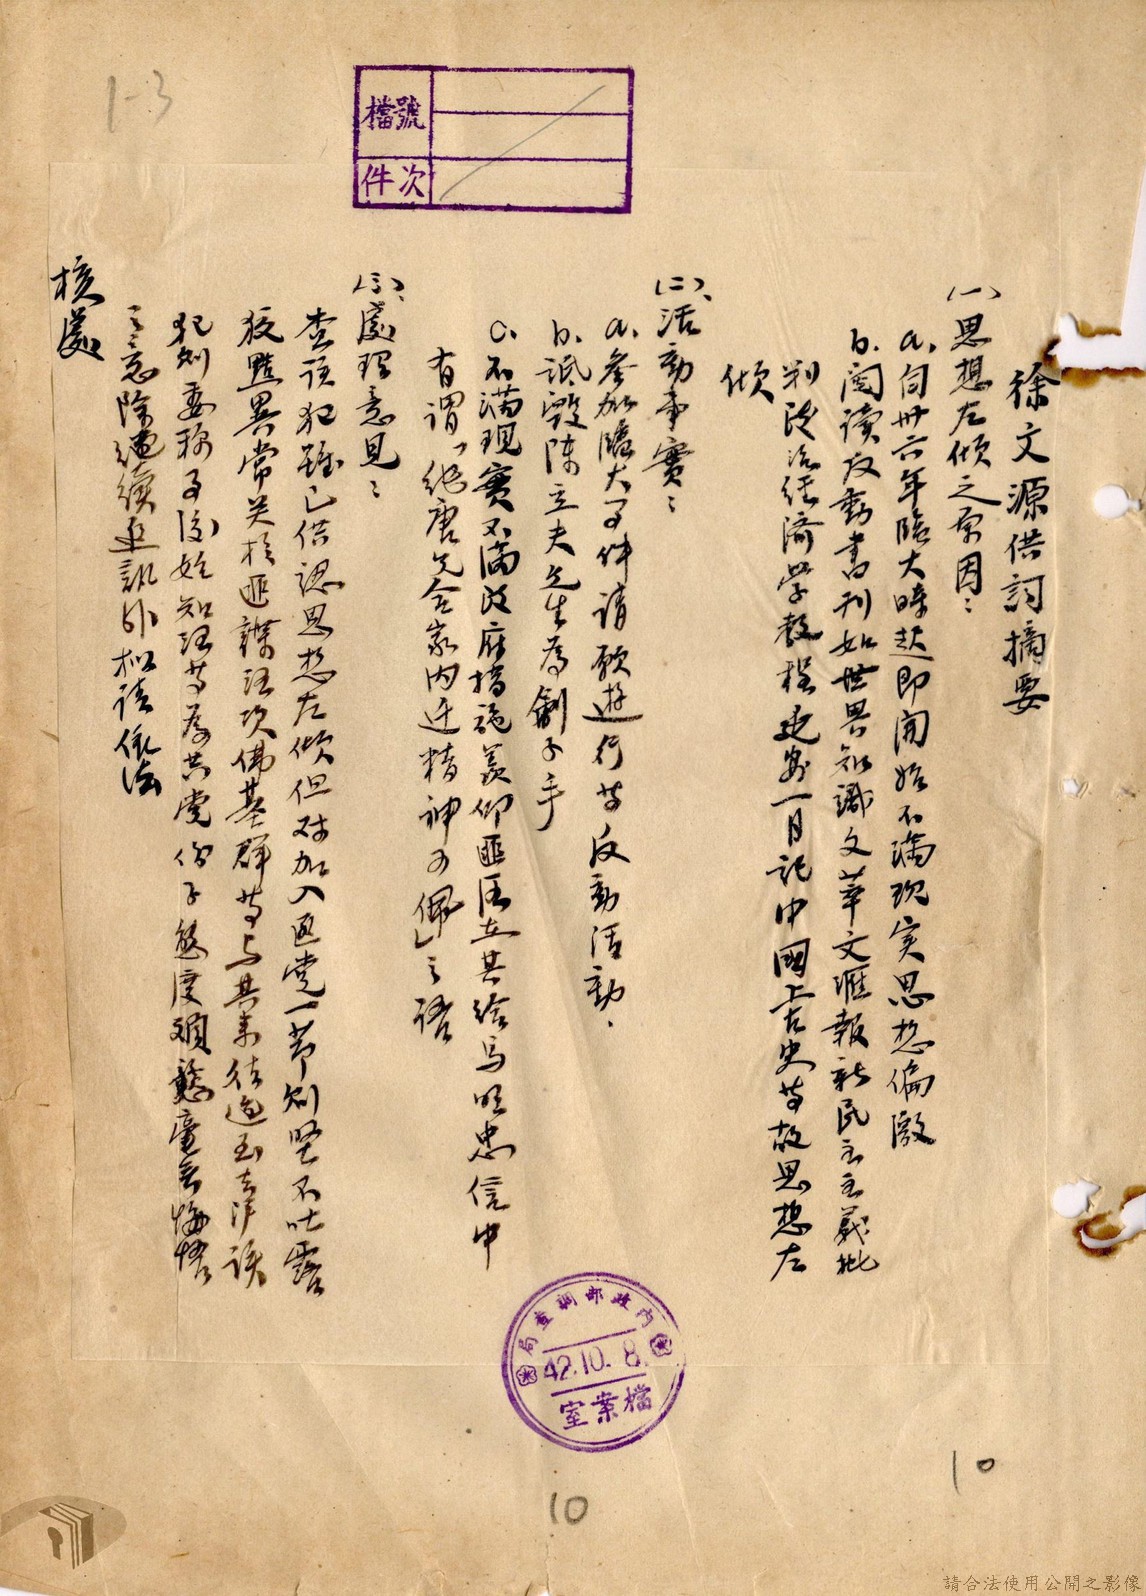 1-3
檔號
件次
徐文源供詞摘要
(一)思想左傾之原因：
a.自卅六年臨大時起即開始不滿現实思想偏激
b.閱讀反動書刊如世界知識文萃文滙報新民主主義批
判政治經濟学教程延安一月記中國上古史等故思想左
傾
(二)活動事實：
a.參加臨大子件請願遊行等反動活動、
b.詆毀陳立夫先生為劊子手
c.不滿現實不滿政府措施羨仰匪區在其給馬旺忠信中
有謂「 唐兄全家内迁精神可佩」之語
(三)處理意見：
查該犯雖已供認思想左傾但对加入匪党一節则坚不吐露
狡黠異常关於匪諜汪次佛基群等与其来往過 該
犯则要称事後始知汪等為共党份子態度頑 毫無悔悟
之意除繼續追訊外擬請依法
核處
內政部調查局
42.10.8.
檔案室
10
10
請合法使用公開之影像